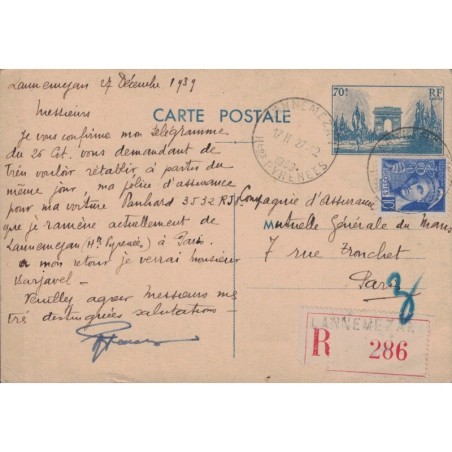 Lannemezan 27 Décembre 1939
Messieurs
Je vous confirme mon télégramme
du 26 Ct. vous demandant de
bien vouloir rétablir à partir du
même jour ma police d'assurance
pour ma voiture Panhard 3532 RJ
que je ramène actuellement de
Lannemezan (Hes Pyrénées) à Paris.
a mon retour je verrai Monsieur
Barjavel.
Veuillez agréer Messieurs mes
très distinguées salutations -
CARTE POSTALE
70c
RF
LANNEMEZAN
17 H 27-12
1939
Htes PYRENEES
Compagnie d'Assurances
Mutuelle Générale du Mans
7 rue Tronchet
Paris
LANNEMEZAN
R 286